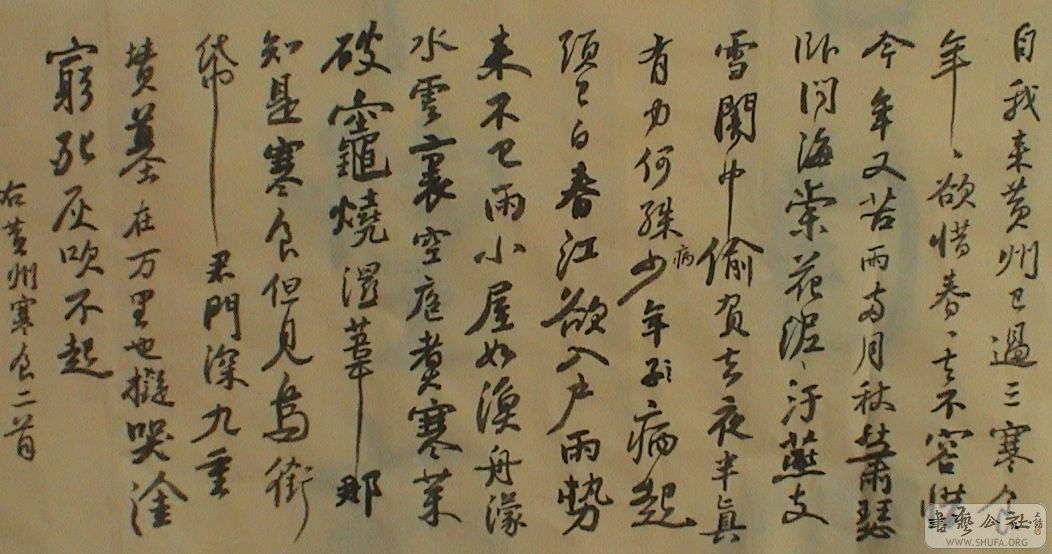 自我来黄州已過三寒食
年、欲惜春、去不容惜
今年又苦雨兩月秋蕭瑟
卧聞海棠花泥、汙燕支
雪闇中偷負去夜半真
有力何殊病少年子病起
頭已白春江欲入戶雨勢
来不已雨小屋如漁舟濛
水雲裏空庖煮寒菜
破竈燒濕葦那
知是寒食但見烏銜
帋君門深九重
墳墓在万里也擬哭塗
窮死灰吹不起
右黄州寒食二首
書藝公社
WWW.SHUFA.ORG